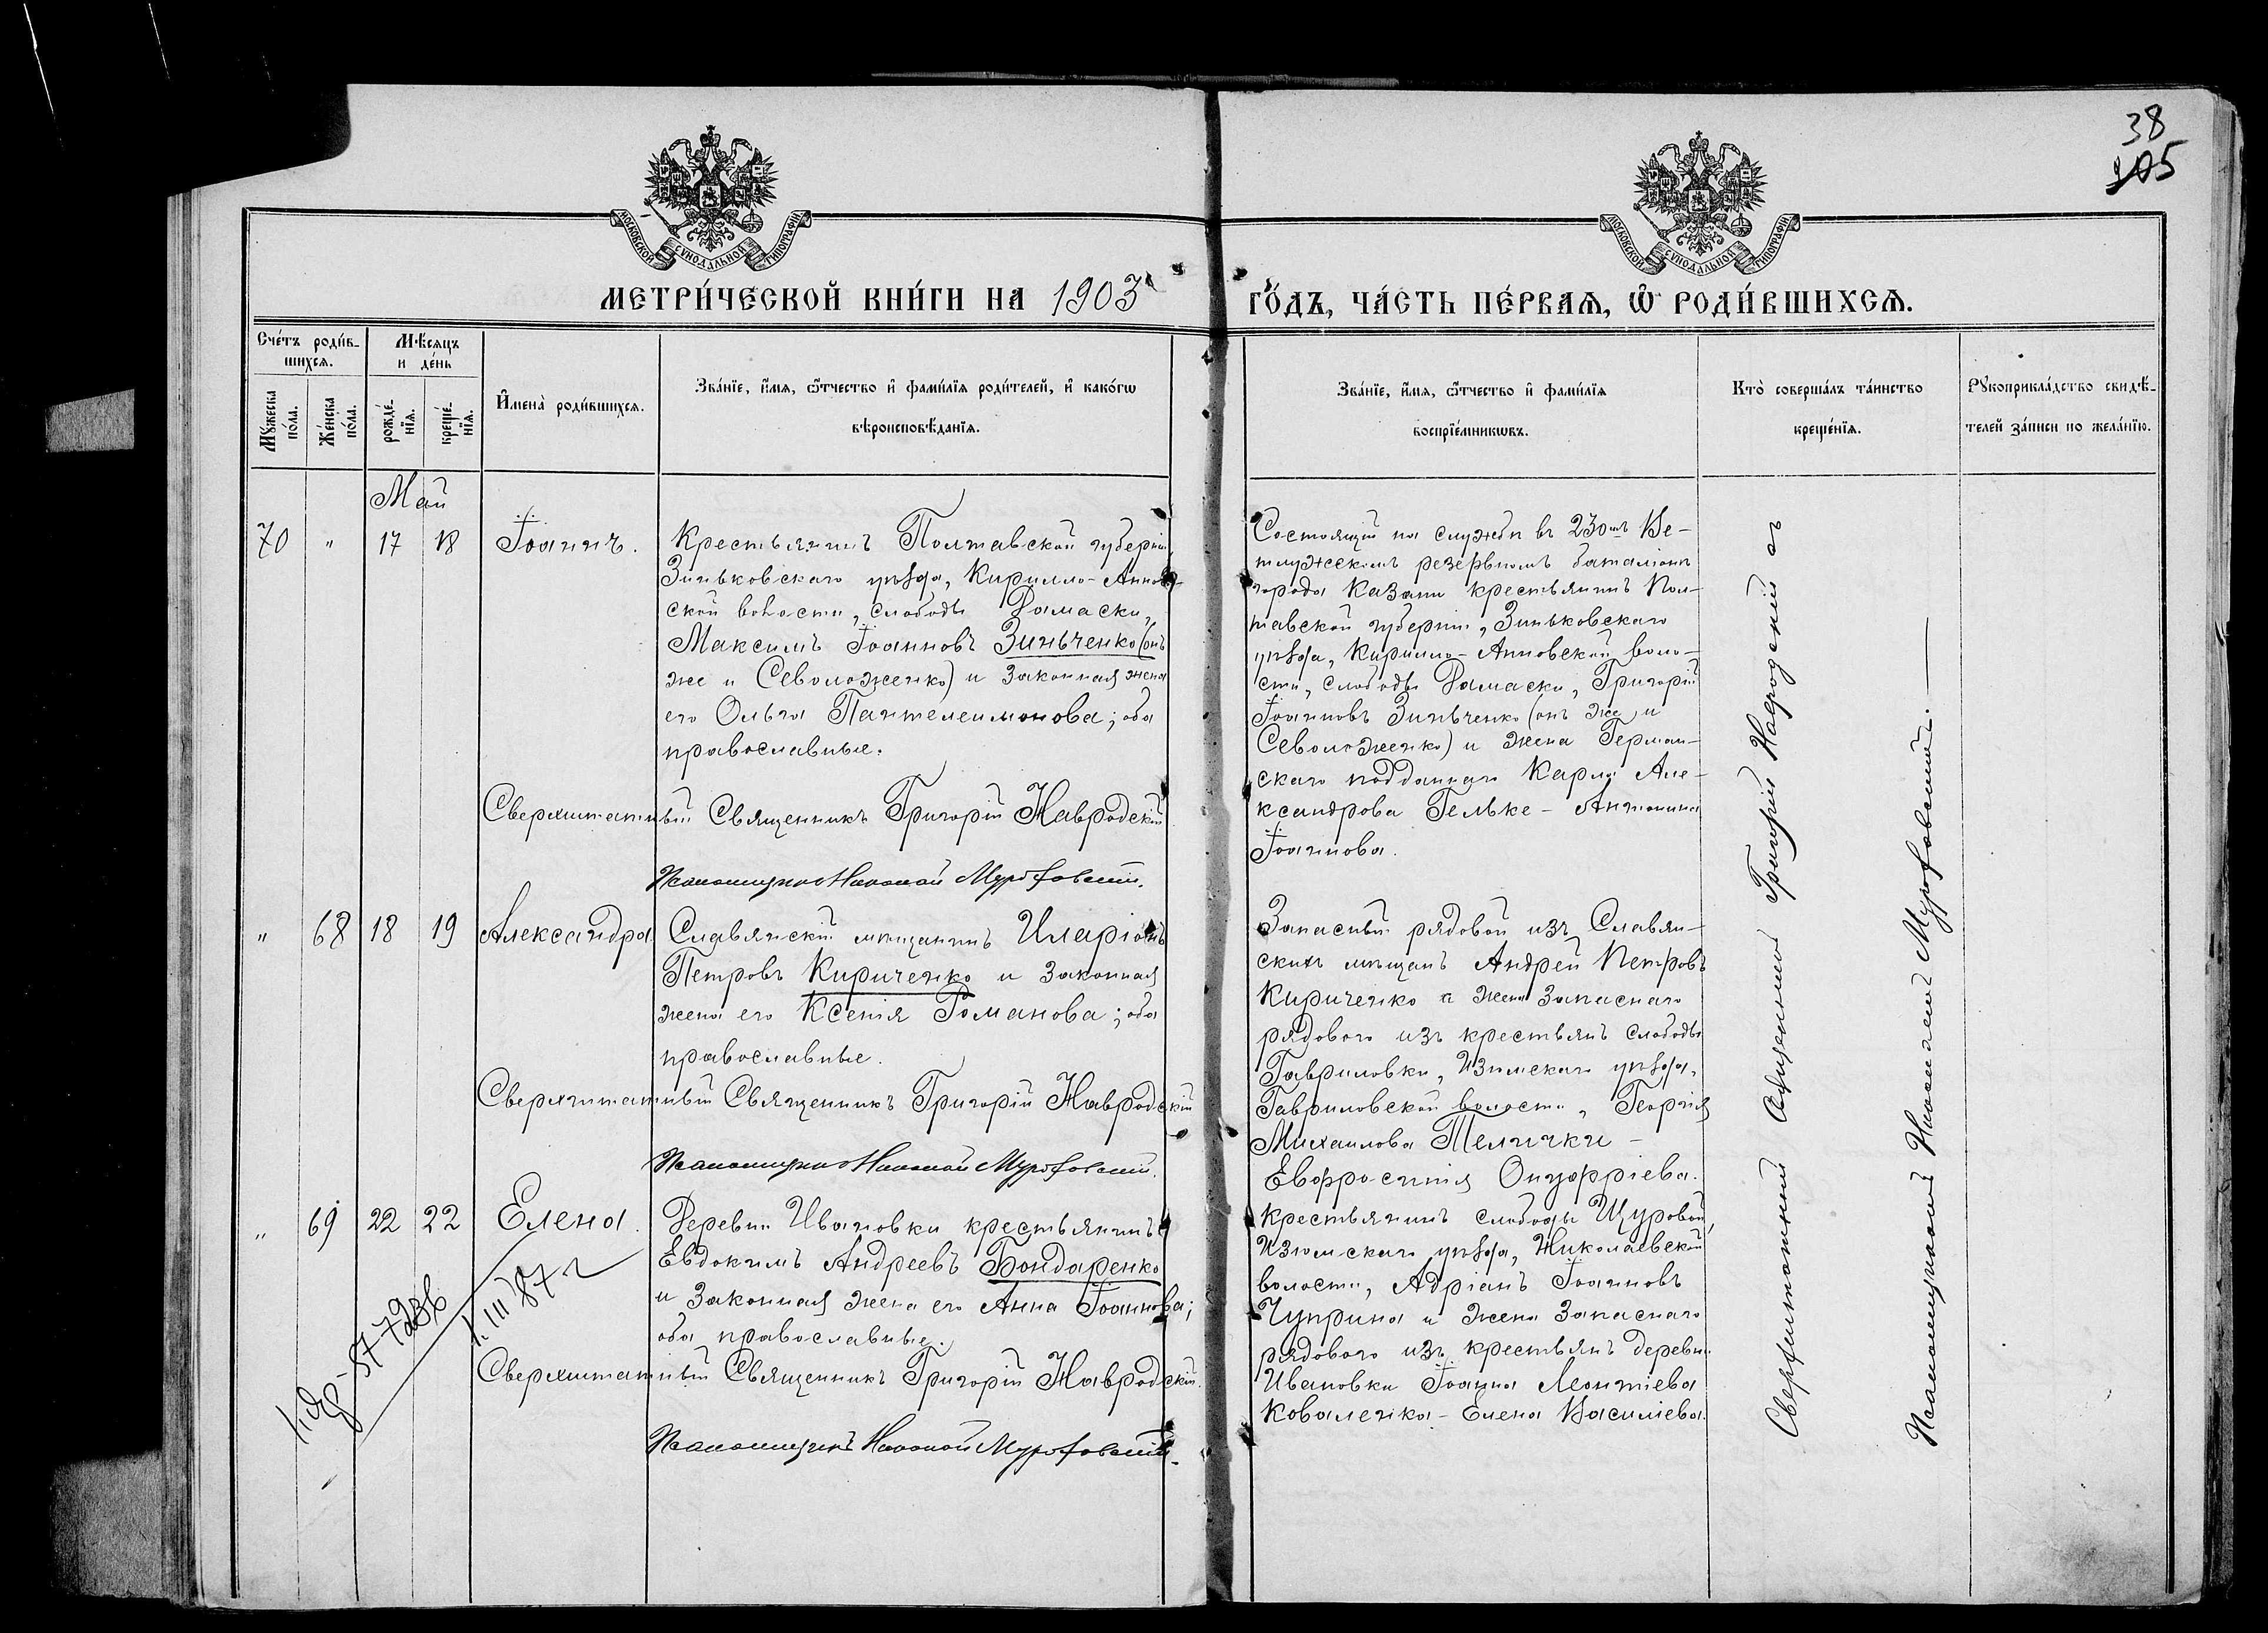 38
105
МОСКОВСКОЙ СѴНОДАЛЬНОЙ ТИПОГРАФІИ
МОСКОВСКОЙ СѴНОДАЛЬНОЙ ТИПОГРАФІИ
МЕТРИ́ЧЕСКОЙ КНИ́ГИ НА 1903
ГО́ДЪ, ЧА́СТЬ ПЕ́РВАѦ, Ѿ РОДИ́ВШИХСѦ.
Сче́тъ роди́в-
шихсѧ.
Мꙋ́жеска по́ла.
Же́нска по́ла.
Мѣ́сѧцъ
и де́нь
рожде́-нїѧ.
креще́-нїѧ.
Имена̀ роди́вшихсѧ.
Зва́нїе, и́мѧ, ѻ́тчество и фами́лїѧ роди́телей, и како́гѡ
вѣроисповѣ́данїѧ.
Зва́нїе, и́мѧ, ѻ́тчество и фами́лїѧ
воспрїе́мникѡвъ.
Кто̀ соверша́лъ та́инство
креще́нїѧ.
Рꙋкоприкла́дство свидѣ́-
телей за́писи по жела́нїю.
Май
70 " 17 18 Іоаннъ.
Крестьянинъ Полтавской губерніи,
Зиньковскаго уѣзда, Кирилло-Аннов-
ской волости, слободы Рамаски,
Максимъ Іоанновъ Зинченко (онъ
же и Севоложенко) и законная жена
его Ольга Пантелеимонова; оба
православные.
Сверхштатный Священникъ Григорій Навродскій
Псаломщикъ Николай
Состоящій на службѣ въ 230мъ Ве-
тлужскомъ резервномъ баталіонѣ
города Казани крестьянинъ Пол-
тавской губерніи, Зиньковскаго
уѣзда, Кирилло-Анновской воло-
сти, слободы Рамаски, Григорій
Іоанновъ Зинченко (онъ же и
Севоложенко) и жена Герман-
скаго подданнаго Карла Але-
ксандрова Гельке - Антонина
Іоаннова.
" 68 18 19 Александра
Славянскій мѣщанинъ Иларіонъ
Петровъ Кириченко и законная
жена его Ксенія Романова; оба
православные.
Сверхштатный Священникъ Григорій Навродскій
Псаломщикъ Николай
Запасный рядовой изъ Славян-
скихъ мѣщанъ Андрей Петровъ
Кириченко и жена запаснаго
рядового изъ крестьянъ слободы
Гавриловки, Изюмскаго уѣзда,
Гавриловской волости, Георгія
Михаилова Телички -
Евфросинія Онуфріева.
" 69 22 22 Елена.
Деревни Ивановки крестьянинъ
Евдокимъ Андреевъ Бондаренко
и законная жена его Анна Іоаннова;
оба православные.
Сверхштатный Священникъ Григорій Навродскій.
Псаломщикъ Николай
Крестьянинъ слободы Щуровой,
Изюмскаго уѣзда, Николаевской
волости, Адріанъ Іоанновъ
Чуприна и жена запаснаго
рядового изъ крестьянъ деревни
Ивановки Іоанна Леонтіева
Коваленка - Елена Василіева.
Сверхштатный Священникъ Григорій Навродскій съ
Псаломщикомъ Николаемъ